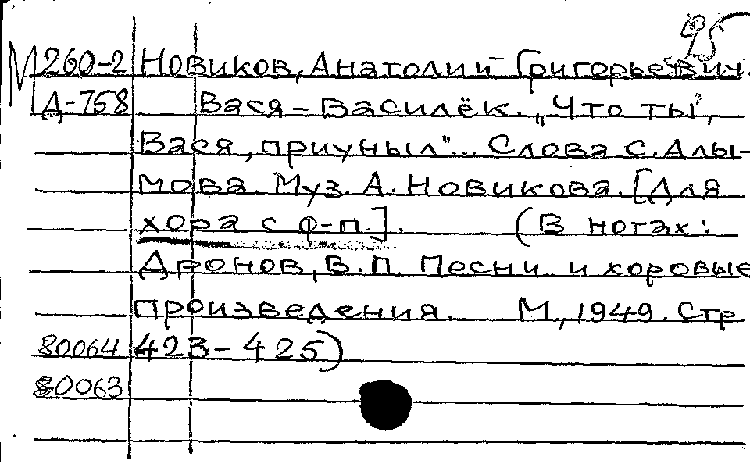 95
М 260-2 Новиков, Анатолий Григорьевич.
Д-758 Вася-Василёк. „Что ты,
Вася, приуныл"... Слова С. Алы-
мова. Муз. А. Новикова. [Для
хора с ф-п.]. (В нотах:
Дронов, В.П. Песни и хоровые
произведения. М, 1949. Стр
80064 423-425)
80063